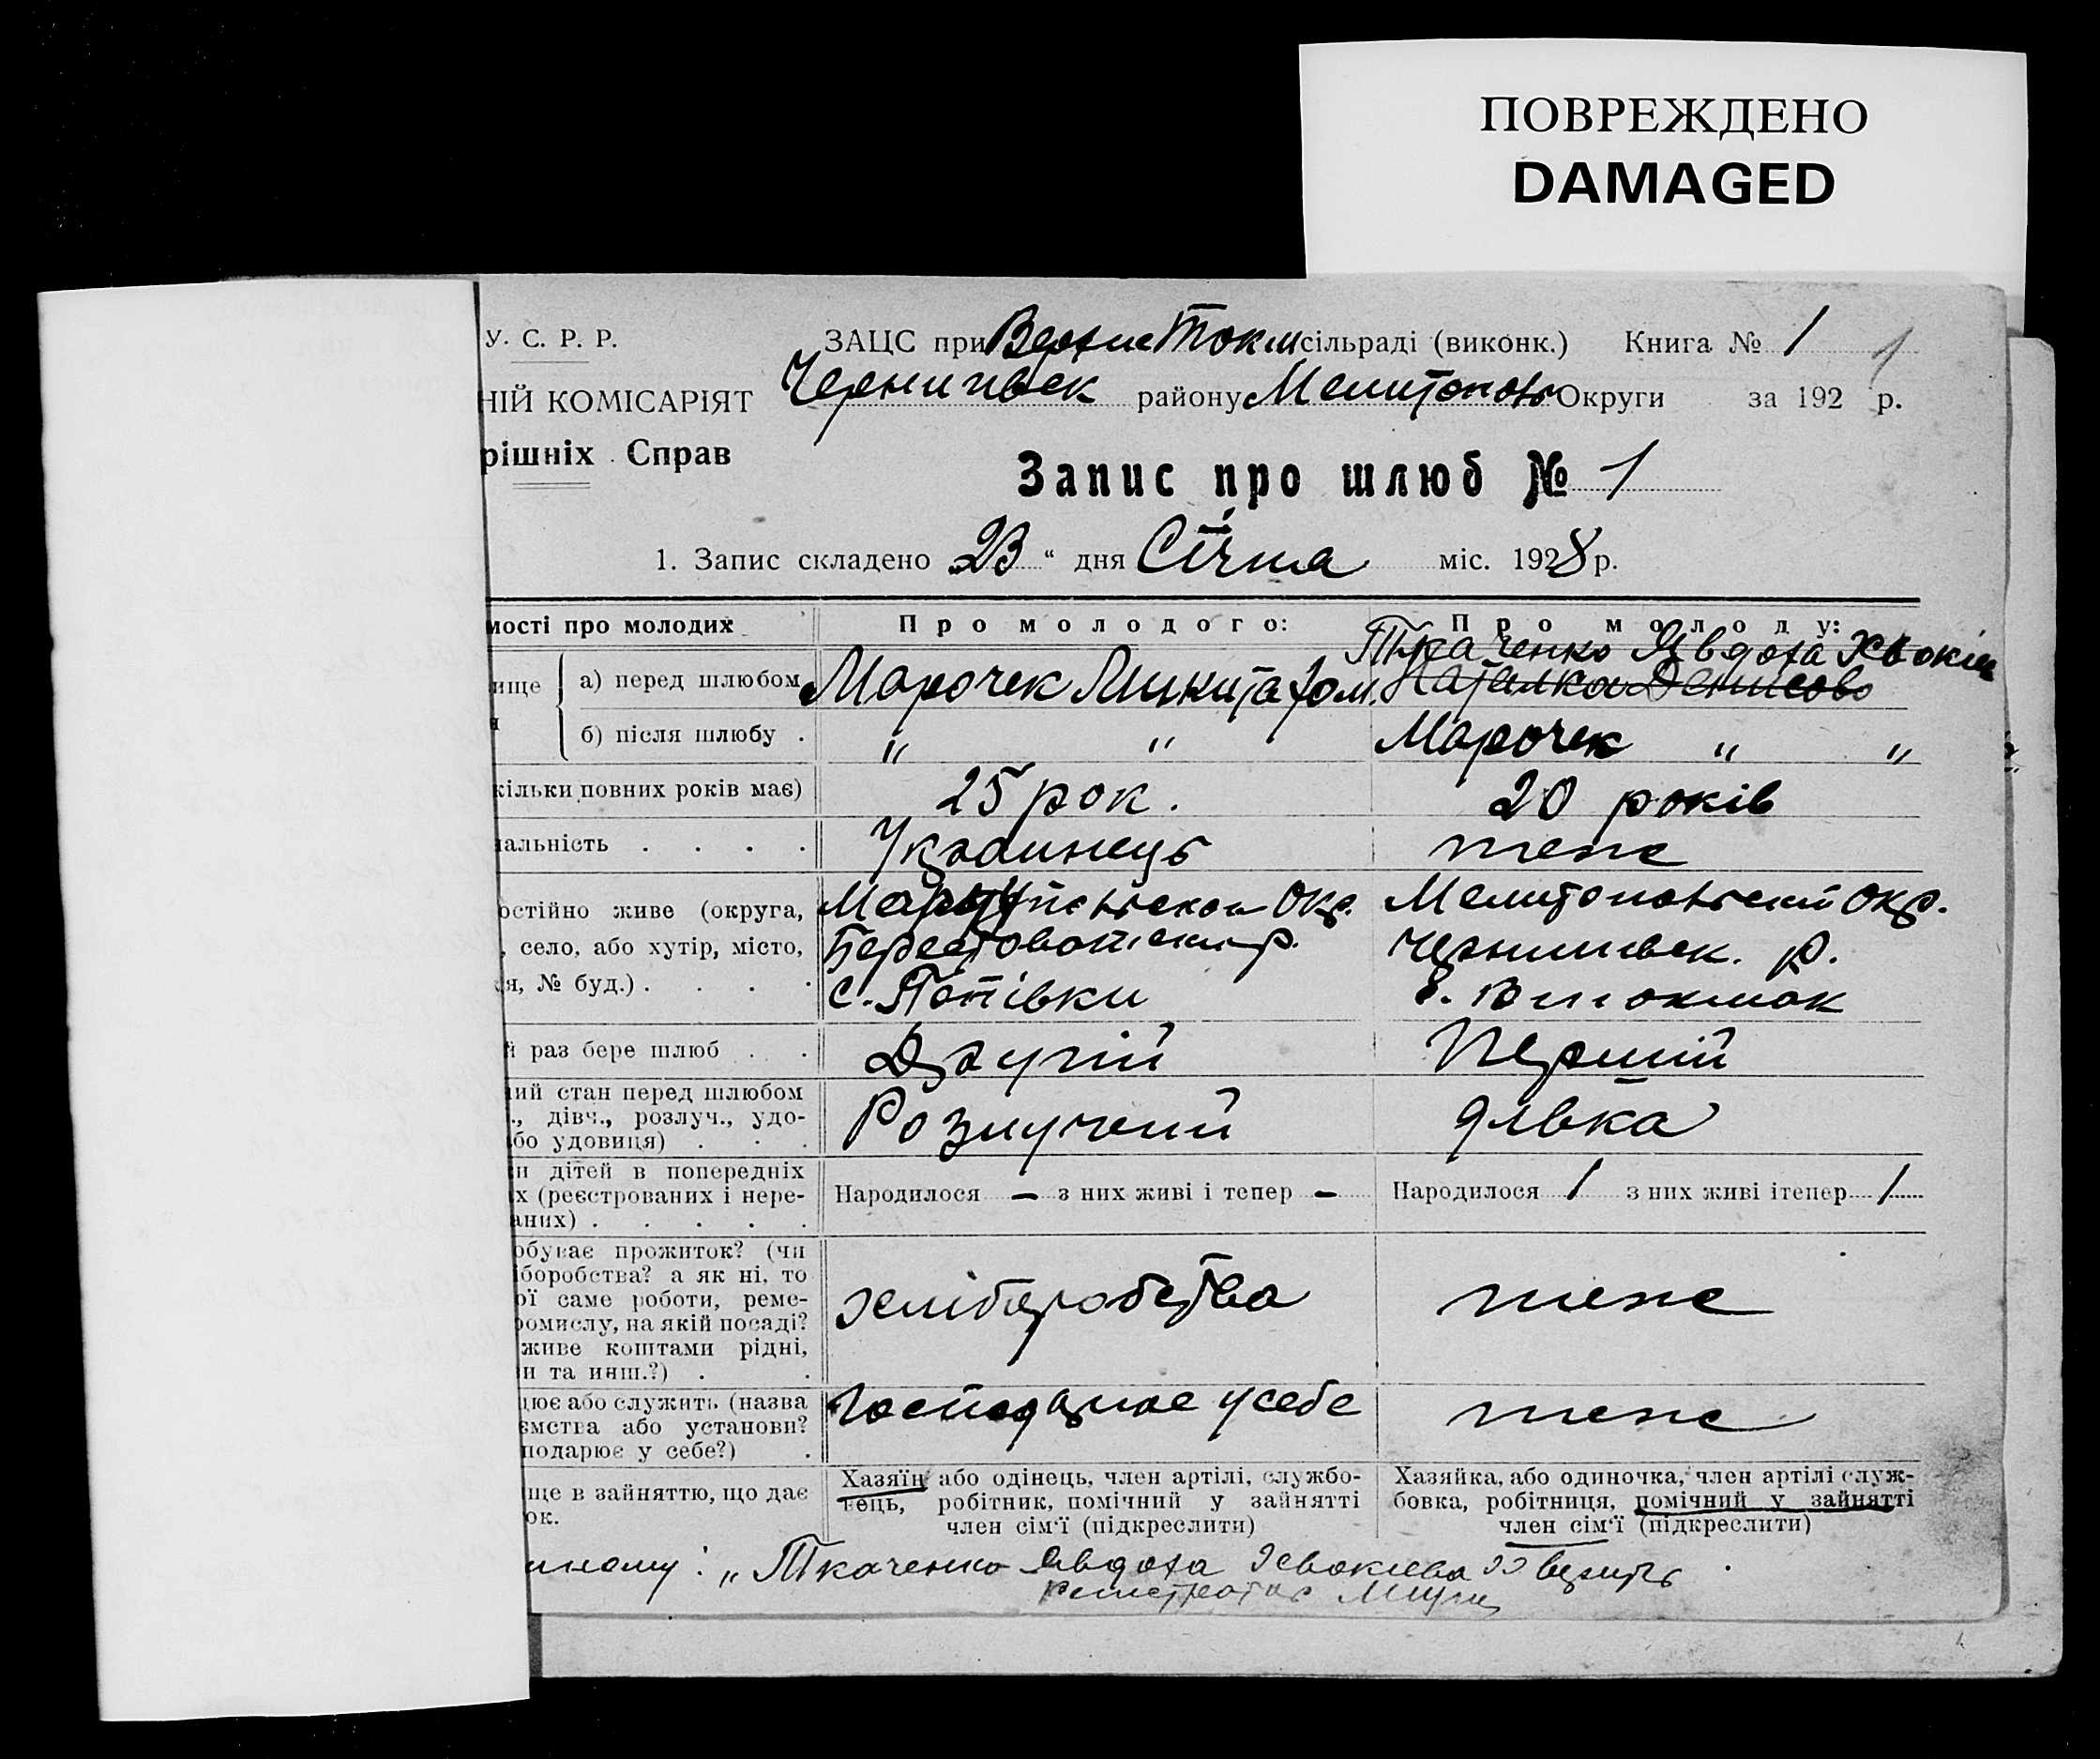 ПОВРЕЖДЕНО
DAMAGED
У. С. Р. Р.
ЗАЦС при Верхне Токм сільраді (виконк.) Книга № 1 1
НІЙ КОМІСАРІЯТ
Чернигвск району Мелитопол Округи за 192 р.
рішніх Справ
Запис про шлюб № 1
1. Запис складено „23“ дня Січня міс. 1928 р.
мості про молодих
Про молодого:
Про молоду:
ище
а) перед шлюбом
Марочек Микита
Ткаченко Явдоха
Наталка Денисово
б) після шлюбу .
" "
Марочек " "
кільки повних років має)
25 рок.
20 років
нальність . . . .
Українець
теж
остійно живе (округа,
, село, або хутір, місто,
я, № буд.) . . . .
Окр.
с. Попівки
Мелитопольскій Окр.
Чернигивск. р.
й раз бере шлюб . .
Другій
Першій
ний стан перед шлюбом
., дівч., розлуч., удо-
бо удовиця) . . .
Розлучений
дівка
ки дітей в попередніх
х (реєстрованих і нере-
аних) . . . . .
Народилося — з них живі і тепер —
Народилося 1 з них живі ітепер 1
обуває прожиток? (чи
іборобства? а як ні, то
ої саме роботи, реме-
ромислу, на якій посаді?
живе коштами рідні,
и та инш.?) . .
хліборобства
теж
цює або служить (назва
ємства або установи?
подарює у себе?) .
Господарює у себе
теж
ще в зайняттю, що дає
ок.
Хазяїн або одінець, член артілі, службо-
вець, робітник, помічний у зайнятті
член сім'ї (підкреслити)
Хазяйка, або одиночка, член артілі служ-
бовка, робітниця, помічний у зайнятті
член сім'ї (підкреслити)
„Ткаченко Явдоха